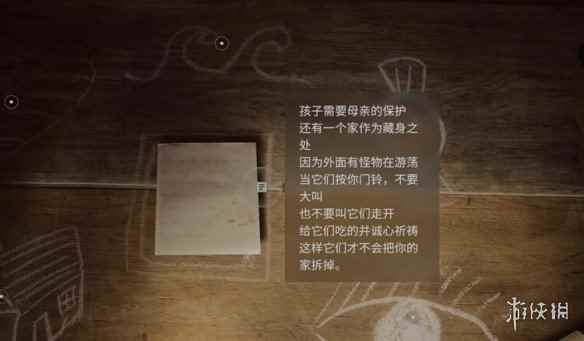 孩子需要母亲的保护
还有一个家作为藏身之
处
因为外面有怪物在游荡
当它们按你门铃，不要
大叫
也不要叫它们走开
给它们吃的并诚心祈祷
这样它们才不会把你的
家拆掉。
游侠网